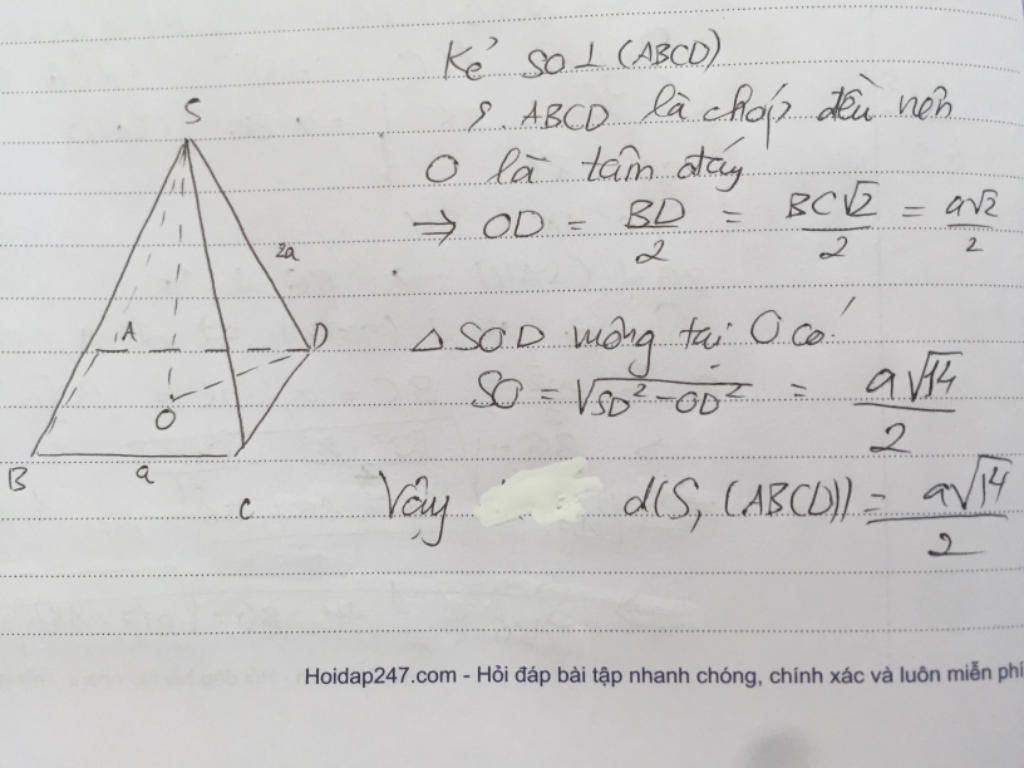 Kẻ SO⊥(ABCD)
S.ABCD là chóp đều nên
O là tâm đáy
⇒ OD = BD/2 = BC√2/2 = a√2/2
△SOD vuông tại O có
SO = √(SD²-OD²) = a√14/2
Vậy d(S, (ABCD)) = a√14/2
S
2a
A
D
O
B
a
C
Hoidap247.com - Hỏi đáp bài tập nhanh chóng, chính xác và luôn miễn phí